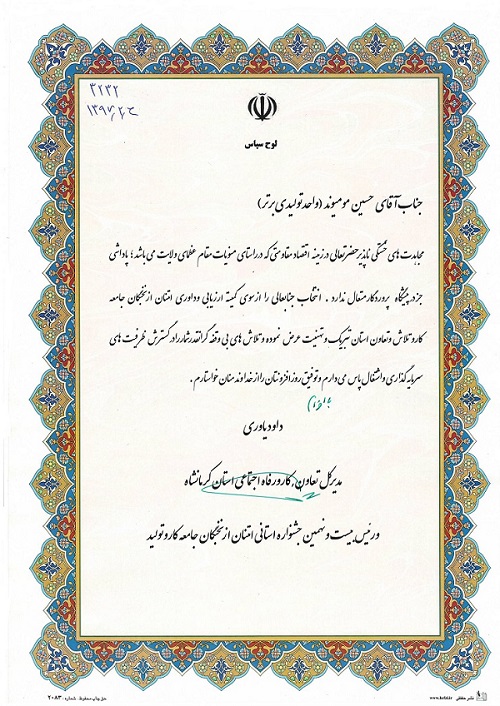 ۳۲۳۲
لوح سپاس
جناب آقای حسین مومیوند (واحد تولیدی برتر)
مجاهدت های خستگی ناپذیر حضرتعالی در زمینه اقتصاد مقاومتی که در راستای منویات مقام عظمای ولایت می باشد؛ پاداشی
جز در پیشگاه پروردگار متعال ندارد. انتخاب جنابعالی را از سوی کمیته ارزیابی و داوری امتنان از نخبگان جامعه
کار و تلاش و تعاون استان تبریک و تهنیت عرض نموده و تلاش های بی وقفه گرانقدر شما را در گسترش ظرفیت های
سرمایه گذاری و اشتغال پاس می دارم و توفیق روز افزونتان را از خداوند منان خواستارم.
داود یاوری
مدیر کل تعاون، کار و رفاه اجتماعی استان کرمانشاه
و رئیس بیست و نهمین جشنواره استانی امتنان از نخبگان جامعه کار و تولید
حق چاپ محفوظ. شماره: ۲۰۸۳